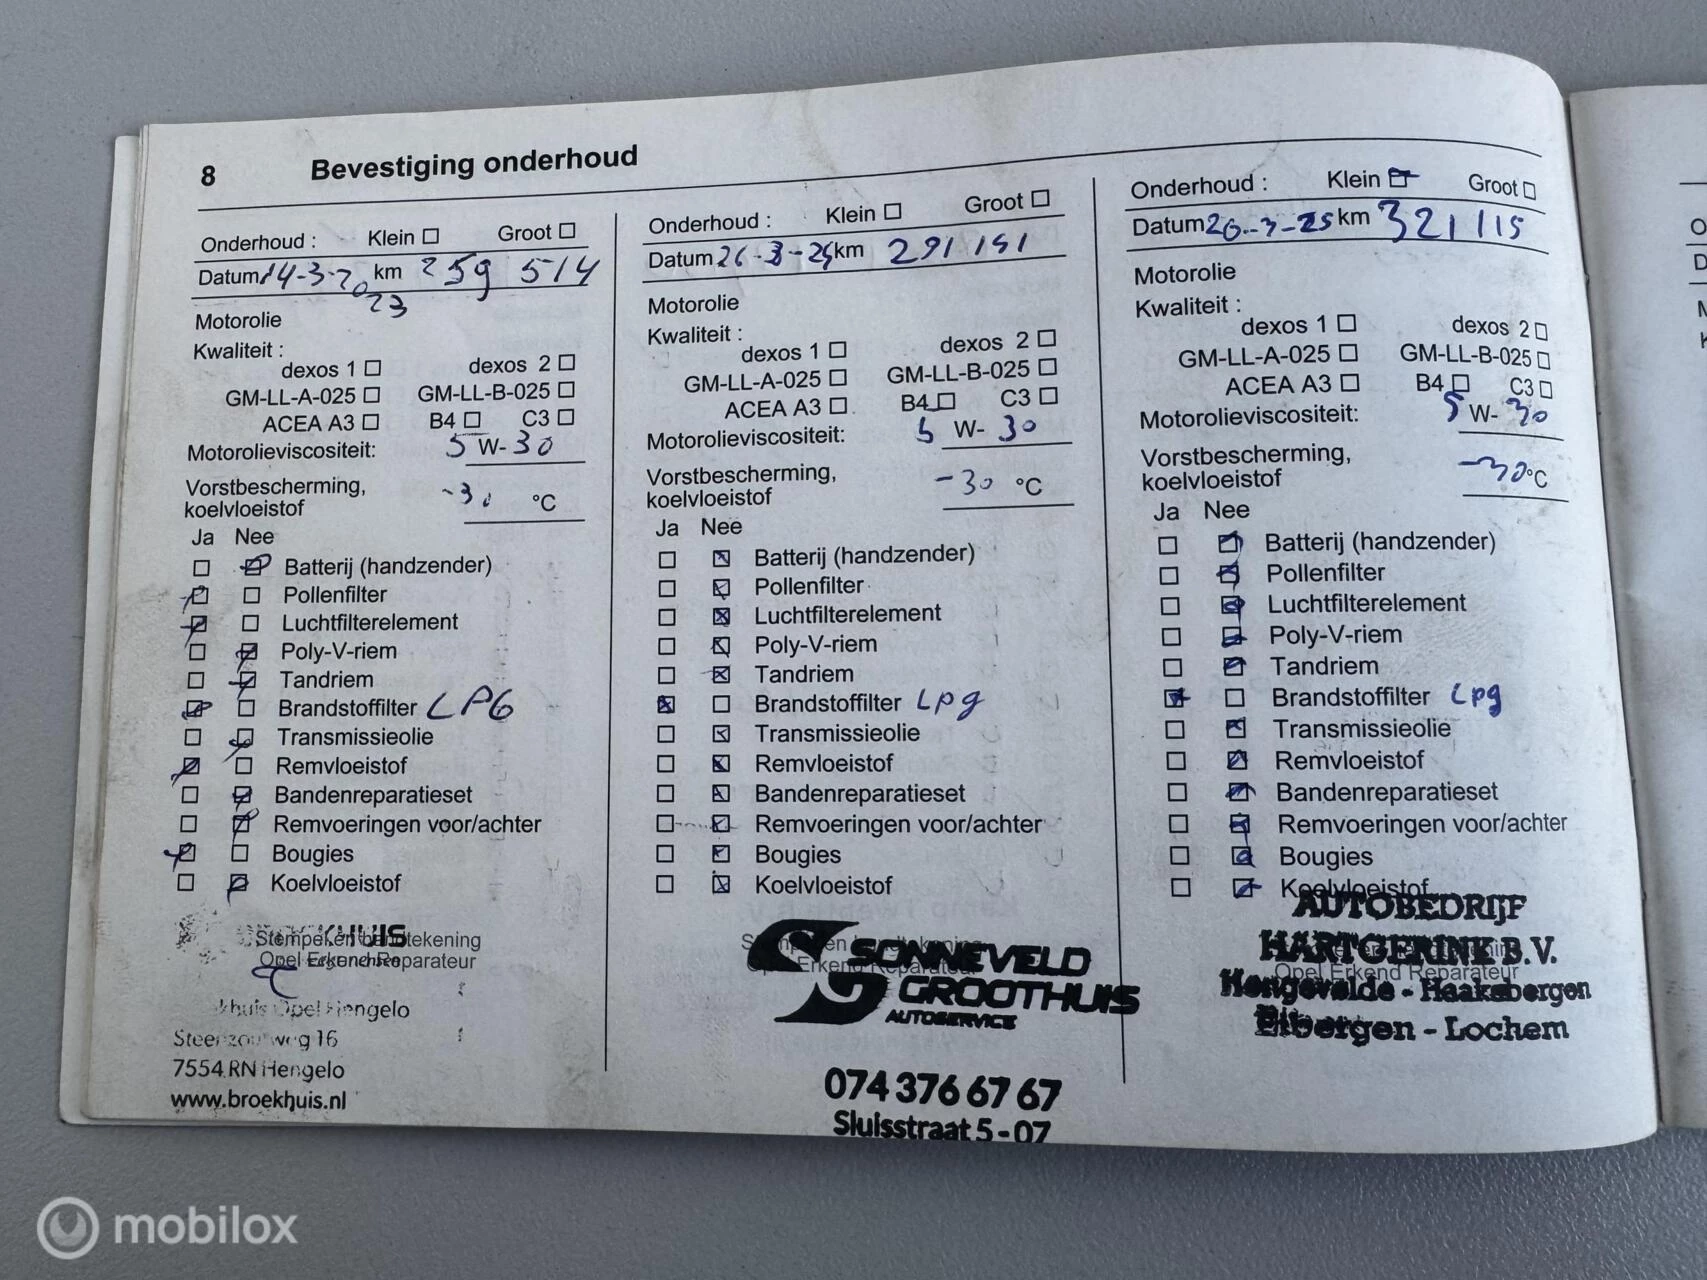 8 Bevestiging onderhoud
Onderhoud : Klein Groot
Datum 14-3-2023 km 259 514
Motorolie
Kwaliteit :
dexos 1 dexos 2
GM-LL-A-025 GM-LL-B-025
ACEA A3 B4 C3
Motorolieviscositeit: 5 W- 30
Vorstbescherming,
koelvloeistof -30 °C
Ja Nee
Batterij (handzender)
Pollenfilter
Luchtfilterelement
Poly-V-riem
Tandriem
Brandstoffilter LPG
Transmissieolie
Remvloeistof
Bandenreparatieset
Remvoeringen voor/achter
Bougies
Koelvloeistof
KHUIS
Stempel en handtekening
Opel Erkend Reparateur
khuis Opel Hengelo
16
7554 RN Hengelo
www.broekhuis.nl
Onderhoud : Klein Groot
Datum 26-3-24 km 291 191
Motorolie
Kwaliteit :
dexos 1 dexos 2
GM-LL-A-025 GM-LL-B-025
ACEA A3 B4 C3
Motorolieviscositeit: 5 W- 30
Vorstbescherming,
koelvloeistof -30 °C
Ja Nee
Batterij (handzender)
Pollenfilter
Luchtfilterelement
Poly-V-riem
Tandriem
Brandstoffilter Lpg
Transmissieolie
Remvloeistof
Bandenreparatieset
Remvoeringen voor/achter
Bougies
Koelvloeistof
SONNEVELD
GROOTHUIS
AUTOSERVICE
074 376 67 67
Sluisstraat 5 - 07
Onderhoud : Klein Groot
Datum 20-3-25 km 321 115
Motorolie
Kwaliteit :
dexos 1 dexos 2
GM-LL-A-025 GM-LL-B-025
ACEA A3 B4 C3
Motorolieviscositeit: 5 W- 30
Vorstbescherming,
koelvloeistof -30 °C
Ja Nee
Batterij (handzender)
Pollenfilter
Luchtfilterelement
Poly-V-riem
Tandriem
Brandstoffilter Lpg
Transmissieolie
Remvloeistof
Bandenreparatieset
Remvoeringen voor/achter
Bougies
Koelvloeistof
AUTOBEDRIJF
HARTGERINK B.V.
Opel Erkend Reparateur
Hengevelde - Haaksbergen
Eibergen - Lochem
mobilox